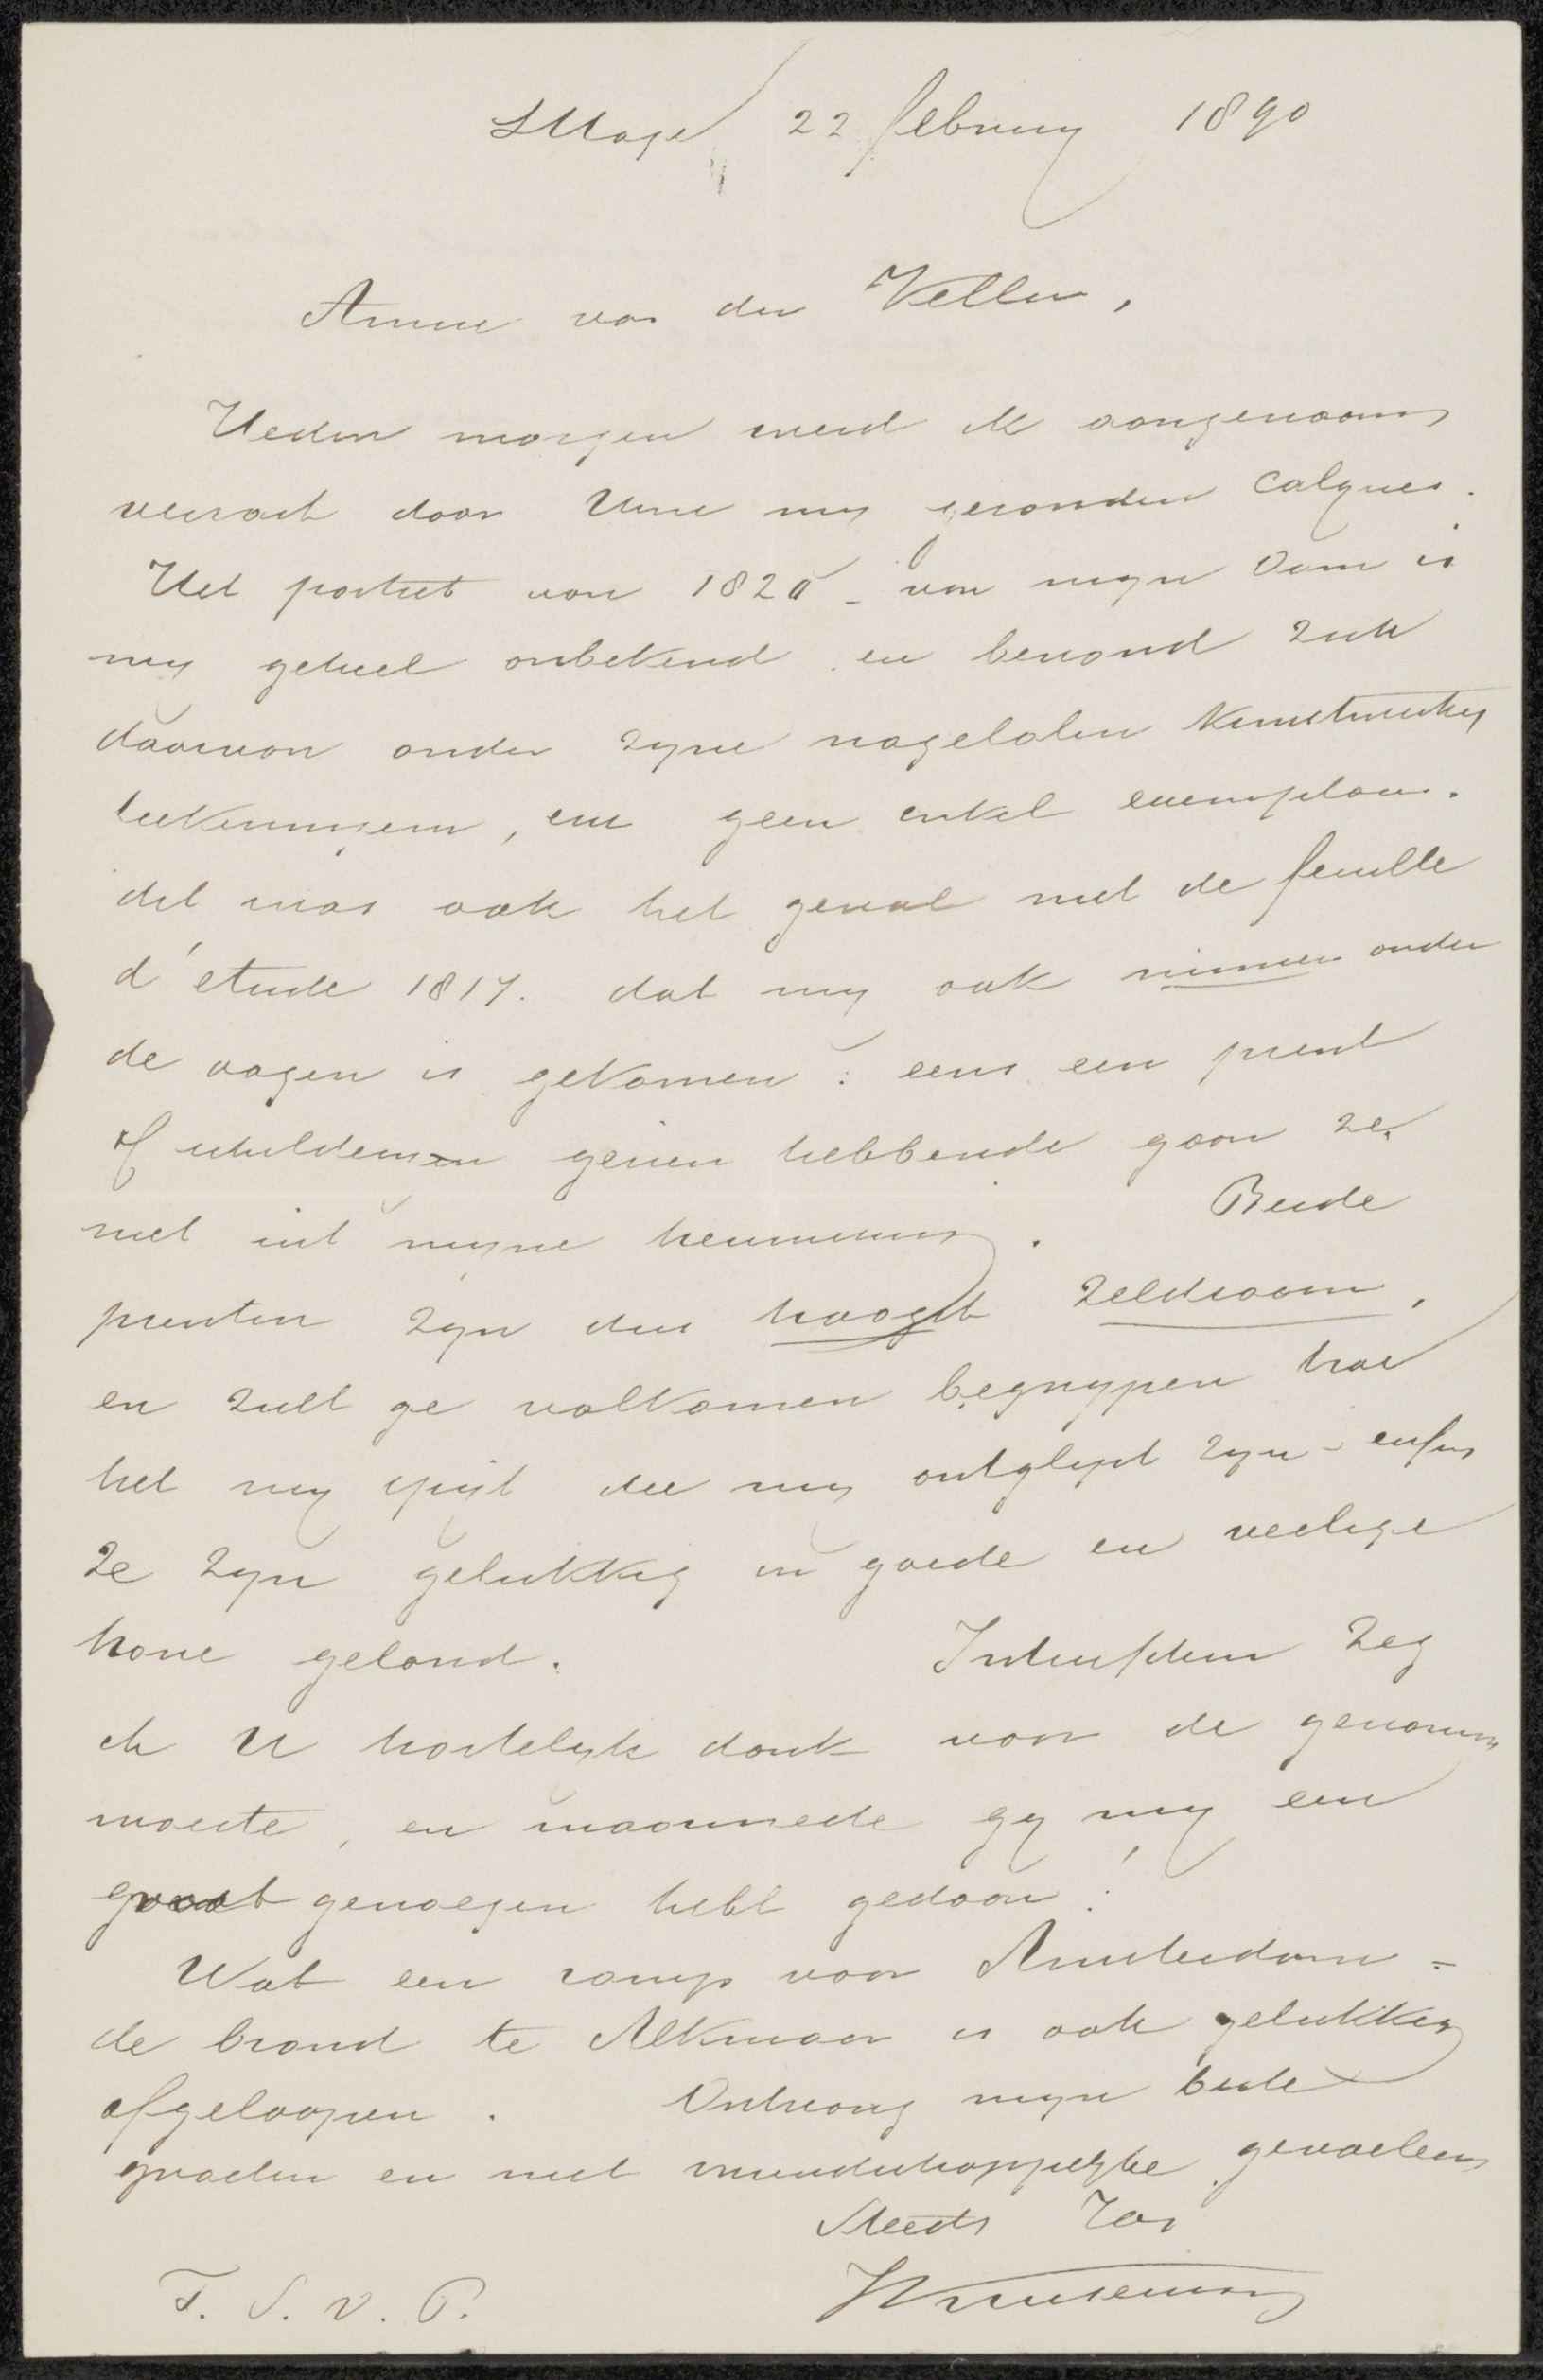 SHage 22 february 1890
Amice van der Kellen,
Heden morgen werd ik aangenaam
verrast door Uwe my gezonden Calques.
Het portret van 1826 - van myn Oom is
my geheel onbekend en bevond zich
daarvan onder zyne nagelaten Kunstwerken
teekeningen, enz geen enkel exemplaar.
dit was ook het geval met de feuille
d'etude 1817. dat my ook nimmer onder
de oogen is gekomen: eens een prent
of schilderyen gezien hebbende gaan ze
niet uit myne herinnering. Beide
prenten zyn dus hoogst zeldzaam,
en zult ge volkomen begrypen hoe
het my spyt die my ontglipt zyn - enfin
ze zyn gelukkig in goede en veilige
have geland. Intusschen zeg
ik U hartelyk dank voor de genomen
moeite, en waarmede gy my een
groot genoegen hebt gedaan!
Wat een ramp voor Amsterdam -
de brand te Alkmaar is ook gelukkig
afgeloopen. Ontvang myn beste
groeten en met vriendschappelyke gevoelens
Steeds Tas
JKruseman
T. S. V. P.